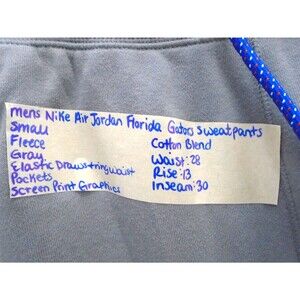 Mens Nike Air Jordan Florida Gators Sweatpants
Small
Fleece
Gray
Elastic Drawstring Waist
Pockets
Screen Print Graphics
Cotton Blend
Waist: 28
Rise: 13
Inseam: 30